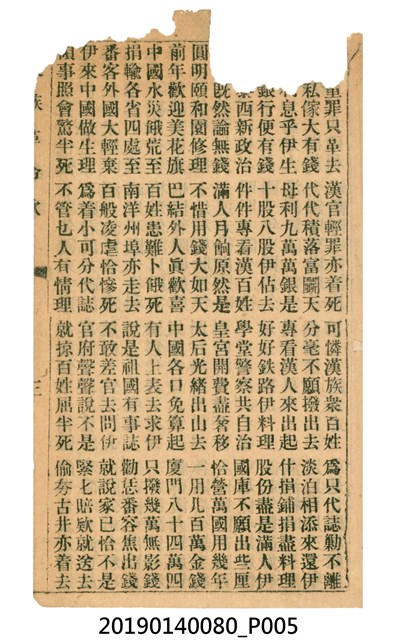 重罪只革去 漢官輕罪亦着死 可憐漢族衆百姓 爲只代誌勦不離
私傢大有錢 代代積落富天 分毫不願撥出去 淡泊相添來還伊
息乎伊生 母利九萬萬銀是 專看漢人來出起 什捐鋪捐盡料理
銀行便有錢 十股八股伊佔去 好好鉄路伊料理 股份盡是滿人伊
西新政治 件件專看漢百姓 學堂警察共自治 國庫不願出些厘
既然論無錢 滿人月餉原然是 皇宮開費盡奢移 恰營萬國用幾年
圓明頤和園修理 不惜用錢大如天 太后光緒出山去 一用几百萬金錢
前年歡迎美花旗 巴結外人眞歡喜 中國各口免算起 廈門八十四萬四
中國水災餓荒至 百姓患難卜餓死 有人上表去求伊 只撥幾萬無影錢
捐輸各省四處至 南洋州埠亦走去 說是祖國有事誌 勸恁番客焦出錢
番客外國大輕棄 百般凌虐恰慘死 不敢差官去問伊 就說家已恰不是
伊來中國做生理 爲着小可分代誌 官府聲聲說不是 緊七賠欵就送去
事照會驚半死 不管乜人有情理 就掠百姓屈半死 偷夯古井亦着去
族革命歌 三
20190140080_P005